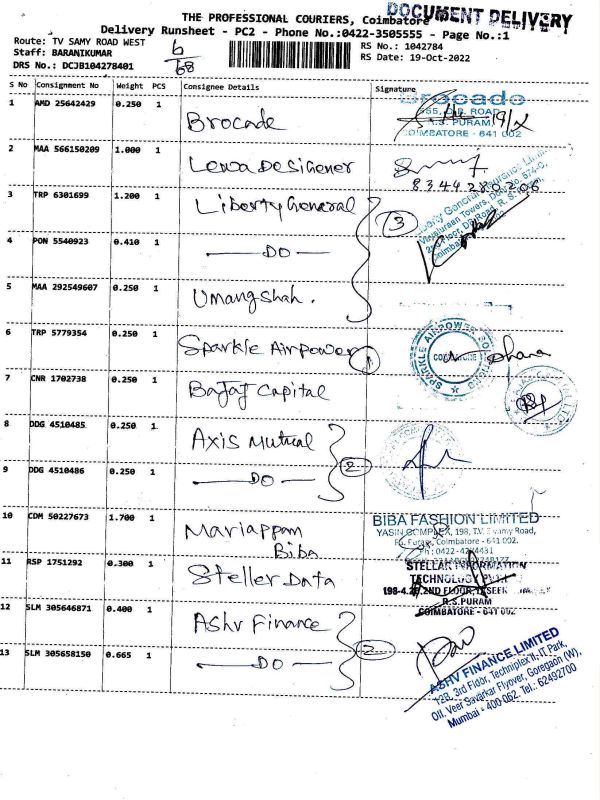 DOCUMENT DELIVERY
THE PROFESSIONAL COURIERS, Coimbatore
Delivery Runsheet - PC2 - Phone No.:0422-3505555 - Page No.:1
Route: TV SAMY ROAD WEST
RS No.: 1042784
Staff: BARANIKUMAR
RS Date: 19-Oct-2022
DRS No.: DCJB104278401
6/68
S No Consignment No Weight PCS Consignee Details Signature
1 AMD 25642429 0.250 1 Brocade
Brocade
R.S. PURAM
COIMBATORE - 641 002
19/x
2 MAA 566150209 1.000 1 Lenva Designer
8344280206
3 TRP 6301699 1.200 1 Liberty General
3
4 PON 5540923 0.410 1 DO
5 MAA 292549607 0.250 1 Umang shah.
6 TRP 5779354 0.250 1 Sparkle Airpower
1
SPARKLE AIRPOWER
COIMBATORE
7 CNR 1702738 0.250 1 Bajaj Capital
8 DDG 4510485 0.250 1 Axis Mutual
2
9 DDG 4510486 0.250 1 DO
10 CDM 50227673 1.700 1 Mariappam
Biba
BIBA FASHION LIMITED
YASIN COMPLEX, 198, T.V. Swamy Road,
Coimbatore - 641 002.
Ph : 0422-4274431
11 RSP 1751292 0.300 1 Steller Data
STELLAR INFORMATION
TECHNOLOGY
2ND FLOOR,
R.S.PURAM
COIMBATORE - 641 002
12 SLM 305646871 0.400 1 Ashv Finance
2
13 SLM 305658150 0.665 1 DO
ASHV FINANCE LIMITED
12B, 3rd Floor, Techniplex II, IT Park,
Off. Veer Savarkar Flyover, Goregaon (W),
Mumbai - 400 062. Tel.: 62492700